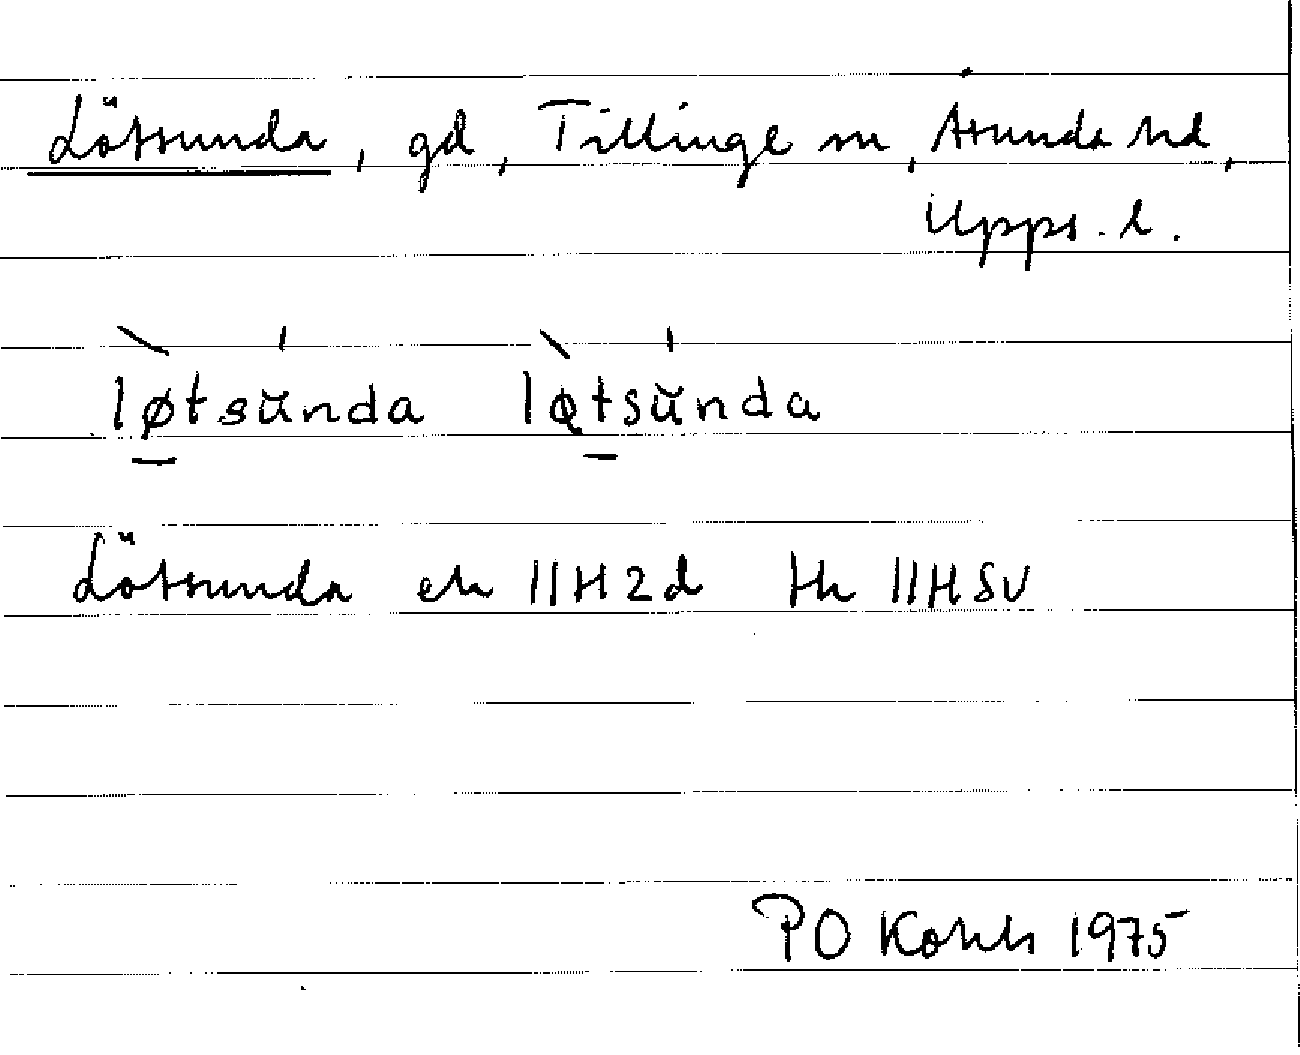 Lötsunda, gd, Tillinge sn, Åsunda hd,
Upps. l.
løtsŭnda lǫtsŭnda
Lötsunda ek 11H2d tk 11HSV
PO 1975